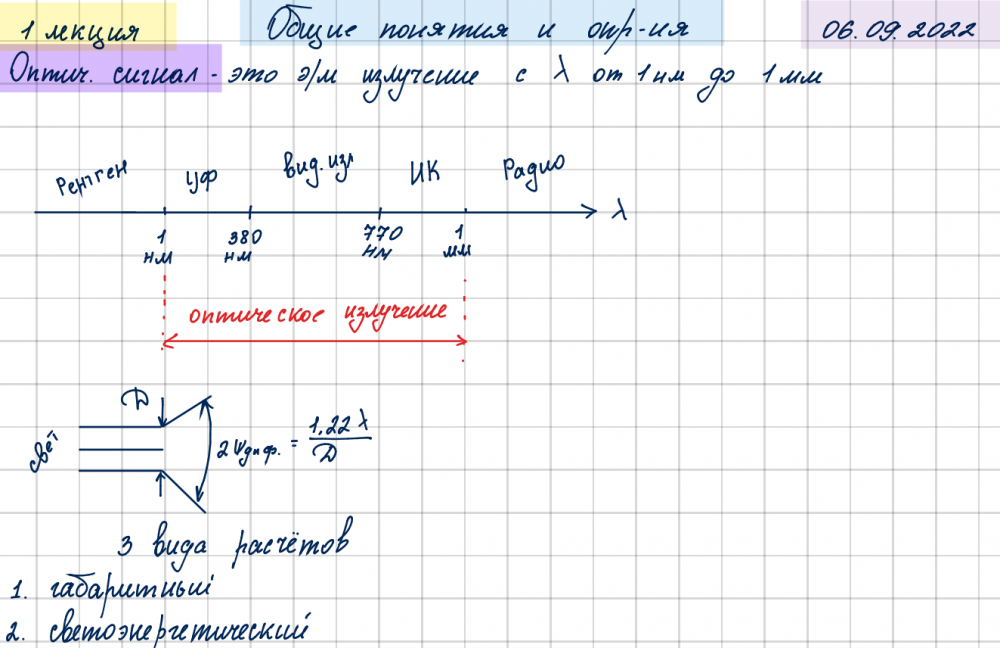 1 лекция Общие понятия и опр-ия 06.09.2022
Оптич. сигнал - это э/м излучение с λ от 1 нм до 1 мм
Рентген УФ вид. изл ИК Радио
λ
1 нм 380 нм 770 нм 1 мм
оптическое излучение
D
свет 2Ψдиф. = 1.22 λ / D
3 вида расчётов
1. габаритный
2. светоэнергетический